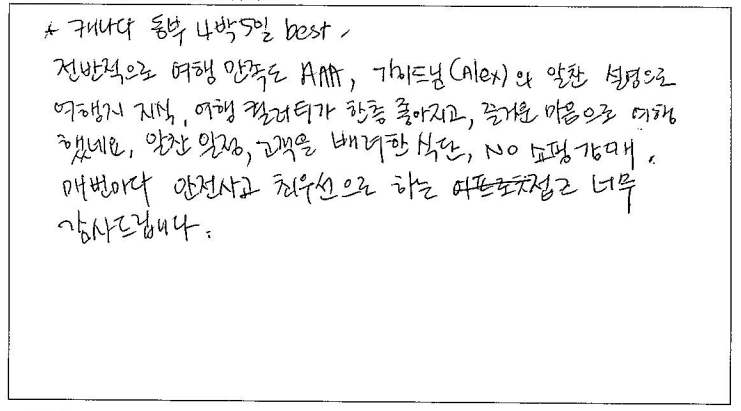 * 캐나다 동부 4박5일 best.
전반적으로 여행 만족도 AAA, 가이드님(Alex)의 알찬 설명으로
여행지 지식, 여행 퀄러티가 한층 좋아지고, 즐거운 마음으로 여행
했네요, 알찬 일정, 고객을 배려한 식단, NO 쇼핑강매.
매번마다 안전사고 최우선으로 하는 접근 너무
감사드립니다.